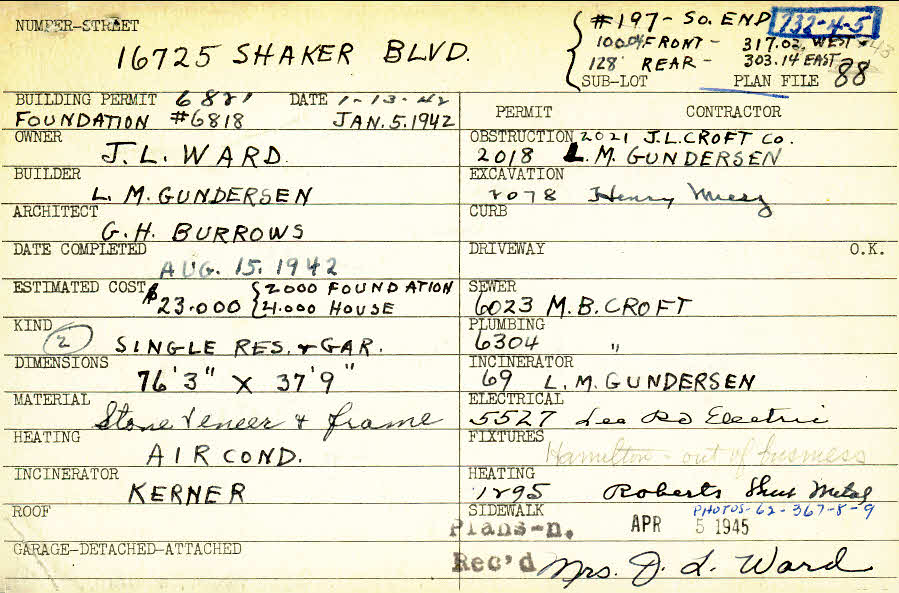 NUMPER-STREET
16725 SHAKER BLVD.
#197 - SO. END 732-4-5
100.04 FRONT - 317.02 WEST
128' REAR - 303.14 EAST
SUB-LOT PLAN FILE 88
BUILDING PERMIT 6821 DATE 1-13-42
FOUNDATION #6818 JAN. 5. 1942
OWNER
J. L. WARD.
BUILDER
L. M. GUNDERSEN
ARCHITECT
G. H. BURROWS
DATE COMPLETED
AUG. 15. 1942
ESTIMATED COST $23.000 {2000 FOUNDATION
21.000 HOUSE
KIND
2 SINGLE RES. & GAR.
DIMENSIONS
76'3" X 37'9"
MATERIAL
Stone Veneer & frame
HEATING
AIR COND.
INCINERATOR
KERNER
ROOF
GARAGE-DETACHED-ATTACHED
PERMIT CONTRACTOR
OBSTRUCTION 2021 J.L. CROFT CO.
2018 L. M. GUNDERSEN
EXCAVATION
2078 Henry
CURB
DRIVEWAY O.K.
SEWER
6023 M. B. CROFT
PLUMBING
6304 "
INCINERATOR
69 L. M. GUNDERSEN
ELECTRICAL
5527 Lee Rd Electric
FIXTURES
Hamilton - out of business
HEATING
1295 Roberts Sheet Metal
SIDEWALK PHOTOS-62-367-8-9
Plans-n. APR 5 1945
Rec'd Mrs. J. L. Ward